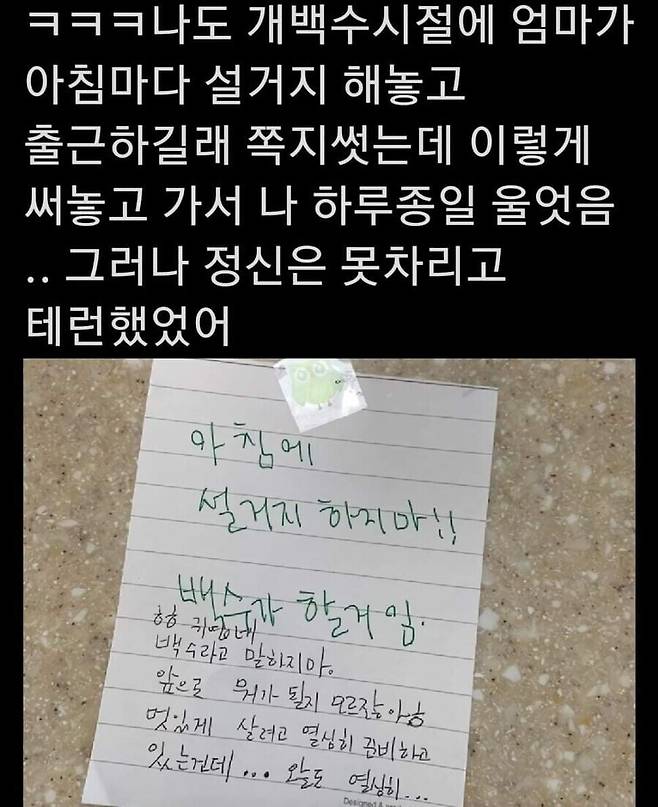 ㅋㅋㅋ나도 개백수시절에 엄마가
아침마다 설거지 해놓고
출근하길래 쪽지썻는데 이렇게
써놓고 가서 나 하루종일 울엇음
.. 그러나 정신은 못차리고
테런했었어
아침에
설거지 하지마!!
백수가 할거임.
흐흐 귀땅네
백수라고 말하지마.
앞으로 뭐가 될지 모르잖아
멋있게 살려고 열심히 준비하고
있는건데... 오늘도 열심히...
Designed &